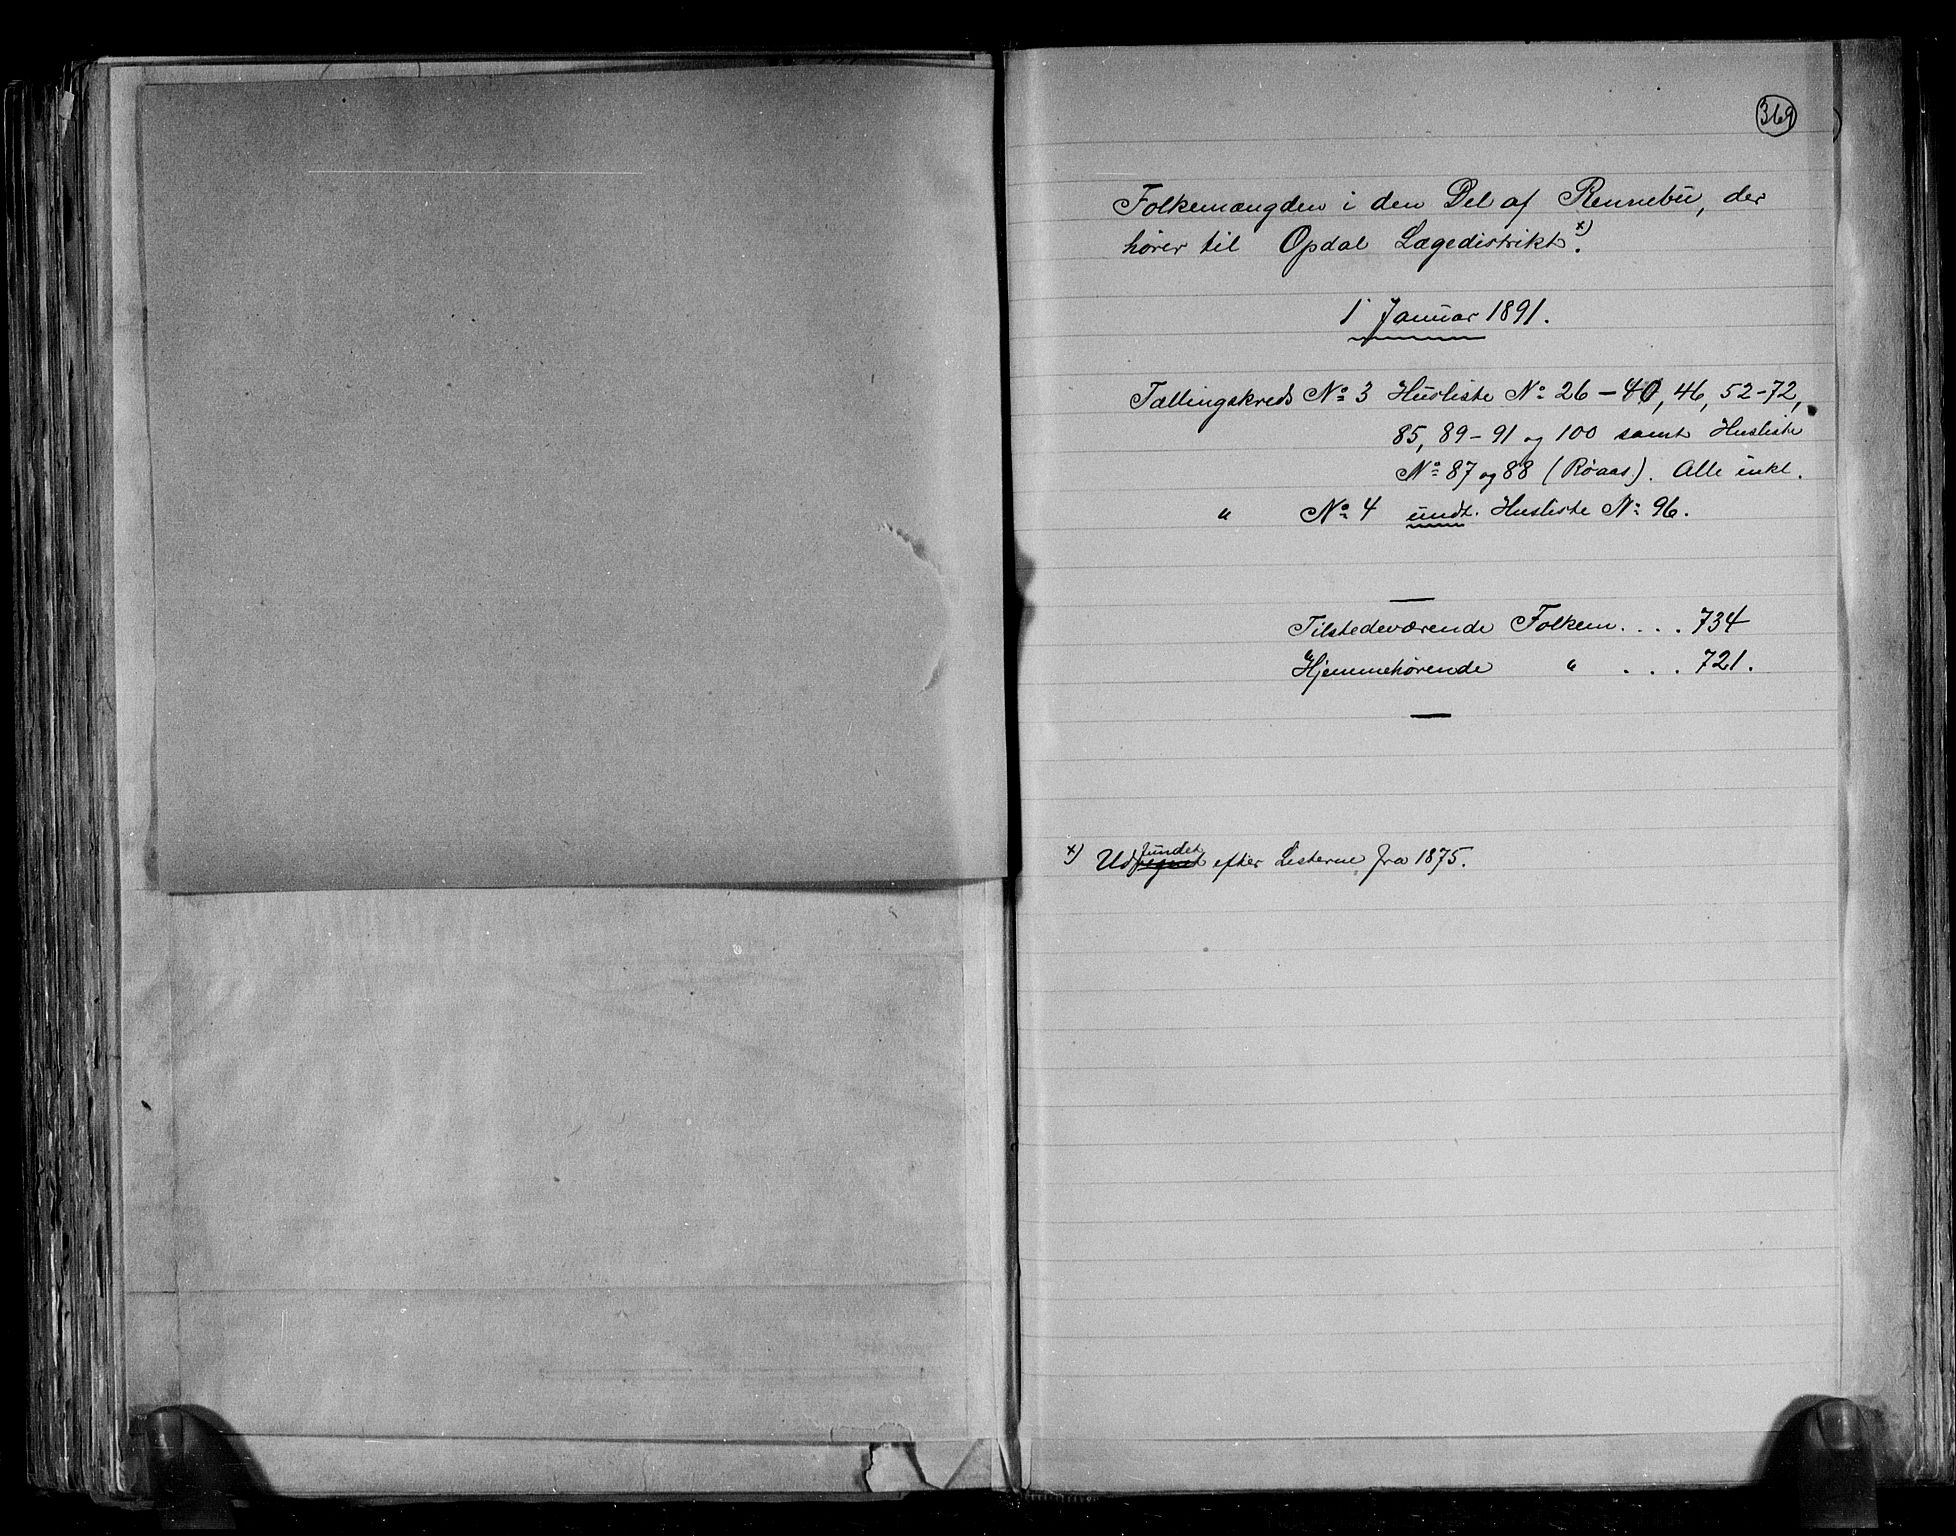 369
Folkemængden i den Del af Rennebu, der
hører til Opdal Lægedistrikt x).
1 Januar 1891.
Tællingskreds No 3 Husliste No 26 – 40, 46, 52-72,
85, 89-91 og 100 samt Husliste
No 87 og 88 (Røaas). Alle inkl.
" No 4 undt. Husliste No 96.
Tilstedeværende Folkem. . . . 734
Hjemmehørende " . . . 721.
x) Udfundet efter Listerne fra 1875.